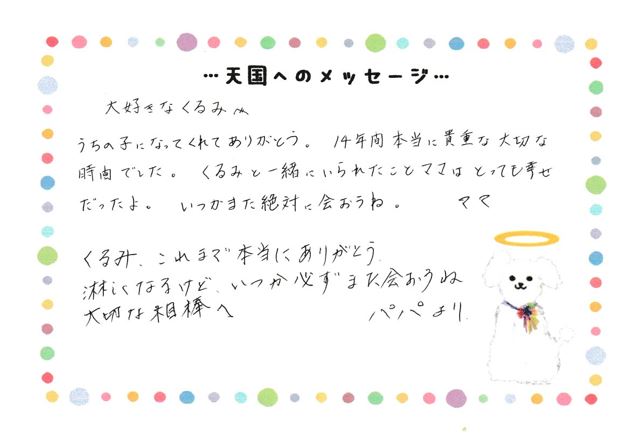 …天国へのメッセージ…
大好きなくるみへ
うちの子になってくれてありがとう。 14年間本当に貴重な大切な
時間でした。 くるみと一緒にいられたことママはとっても幸せ
だったよ。 いつかまた絶対に会おうね。 ママ
くるみ、これまで本当にありがとう。
淋しくなるけど、いつか必ずまた会おうね
大切な相棒へ パパより.